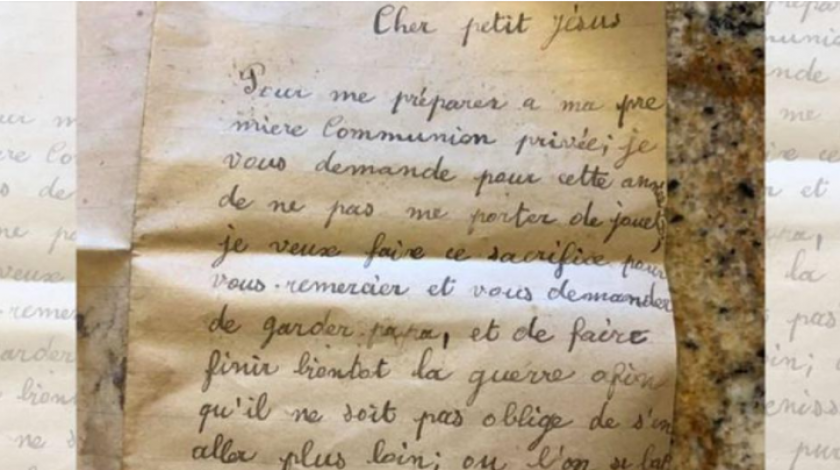 Cher petit Jésus
Pour me préparer a ma pre
mière Communion privée; je
vous demande pour cette année
de ne pas me porter de jouets,
je veux faire ce sacrifice pour
vous remercier et vous demander
de garder papa, et de faire
finir bientot la guerre afin
qu'il ne soit pas oblige de s'en
aller plus loin; ou l'on se bat